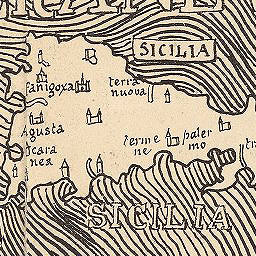 SICILIA
fanigoxa
terra
nuova
Agusta
fcara
nea
terme
ne
paler
mo
tra
SICILIA